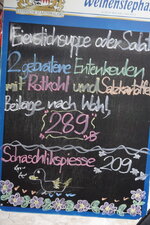 Weihenstephan
Fleischsuppe oder Salat
2 gebratene Entenkeulen
mit Rotkohl und Salzkartoffel
Beilage nach Wahl
289.-
Schaschlikspiesse 209.-